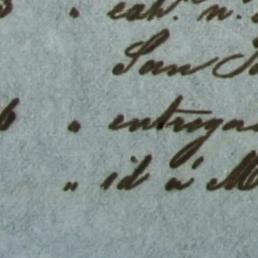 3 " cah. n.
San
6 " entrega
" id a M